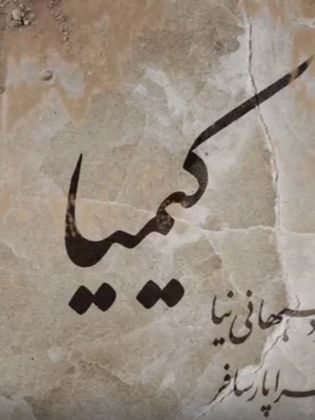 کیمیا
بهانی نیا
را پارسافر